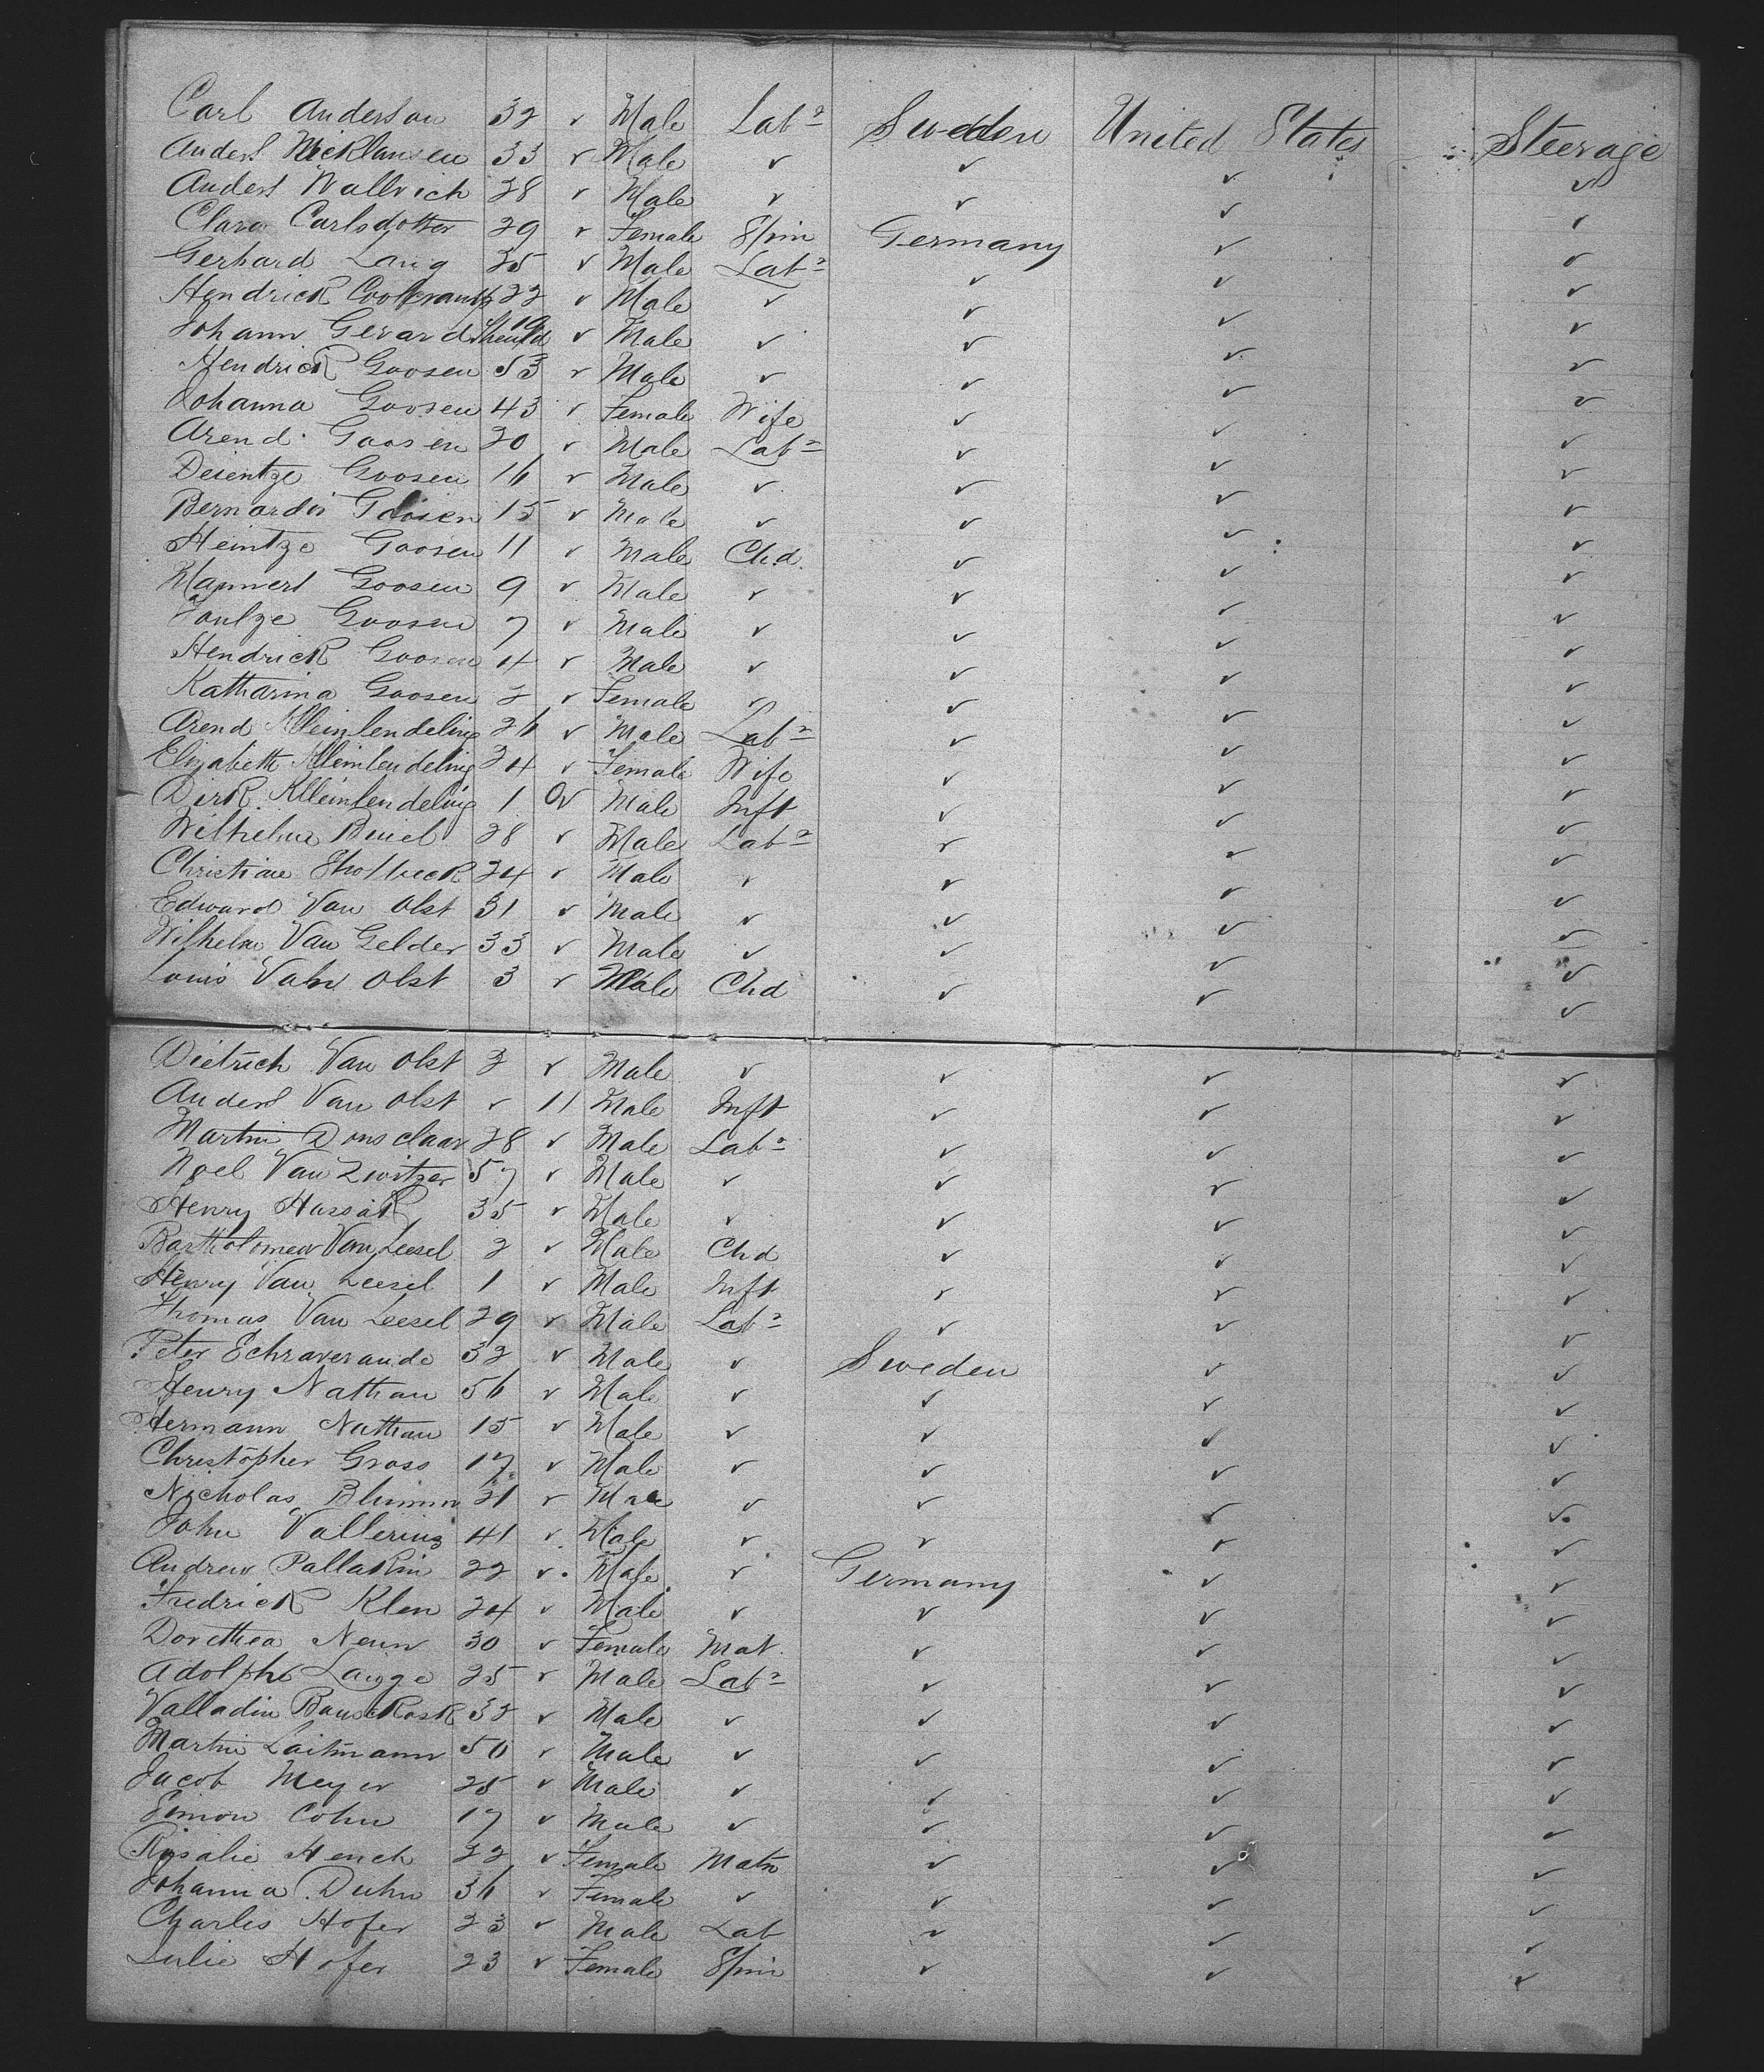 Carl Anderson 32 ✓ Male Labr Sweden United States Steerage
Anders Nicklansen 33 ✓ Male ✓ ✓ ✓ ✓
Anders Wallrich 28 ✓ Male ✓ ✓ ✓ ✓
Clara Carlsdotter 29 ✓ Female Spin Germany ✓ ✓
Gerhard Lang 35 ✓ Male Labr ✓ ✓ ✓
Hendrick 22 ✓ Male ✓ ✓ ✓ ✓
Johann Gerard 19 ✓ Male ✓ ✓ ✓ ✓
Hendrick Goosen 53 ✓ Male ✓ ✓ ✓ ✓
Johanna Goosen 43 ✓ Female Wife ✓ ✓ ✓
Arend Goosen 20 ✓ Male Labr ✓ ✓ ✓
Deientze Goosen 16 ✓ Male ✓ ✓ ✓ ✓
Bernardus Goosen 15 ✓ Male ✓ ✓ ✓ ✓
Heintze Goosen 11 ✓ Male Chd. ✓ ✓ ✓
Mannert Goosen 9 ✓ Male ✓ ✓ ✓ ✓
Foultze Goosen 7 ✓ Male ✓ ✓ ✓ ✓
Hendrick Goosen 4 ✓ Male ✓ ✓ ✓ ✓
Katharina Goosen 2 ✓ Female ✓ ✓ ✓ ✓
Arend Kleinlendeling 26 ✓ Male Labr ✓ ✓ ✓
Elizabeth Kleinlendeling 24 ✓ Female Wife ✓ ✓ ✓
Dirk Kleinlendeling 1 ✓ Male Inft ✓ ✓ ✓
Wilhelm Buiel 28 ✓ Male Labr ✓ ✓ ✓
Christian Sholbeck 24 ✓ Male ✓ ✓ ✓ ✓
Edward Van Olst 31 ✓ Male ✓ ✓ ✓ ✓
Wilhelm Van Gelder 33 ✓ Male ✓ ✓ ✓ ✓
Louis Van Olst 3 ✓ Male Chd ✓ ✓ ✓
Dietrich Van Olst 2 ✓ Male ✓ ✓ ✓ ✓
Anders Van Olst ✓ 11 Male Inft ✓ ✓ ✓
Martin Donsclaar 28 ✓ Male Labr ✓ ✓ ✓
Noel Van Zwitzer 57 ✓ Male ✓ ✓ ✓ ✓
Henry Hassak 35 ✓ Male ✓ ✓ ✓ ✓
Bartholomew Van Leesel 2 ✓ Male Chd ✓ ✓ ✓
Henry Van Leesel 1 ✓ Male Inft ✓ ✓ ✓
Thomas Van Leesel 29 ✓ Male Labr ✓ ✓ ✓
Peter Echraverande 32 ✓ Male ✓ Sweden ✓ ✓
Henry Nathan 56 ✓ Male ✓ ✓ ✓ ✓
Hermann Nathan 15 ✓ Male ✓ ✓ ✓ ✓
Christopher Gross 17 ✓ Male ✓ ✓ ✓ ✓
Nicholas Blumm 21 ✓ Male ✓ ✓ ✓ ✓
John Vallerius 41 ✓ Male ✓ ✓ ✓ ✓
Andrew Pallakin 22 ✓ Male ✓ Germany ✓ ✓
Fredrick Klen 24 ✓ Male ✓ ✓ ✓ ✓
Dorethea Neun 30 ✓ Female Mat. ✓ ✓ ✓
Adolphe Lange 25 ✓ Male Labr ✓ ✓ ✓
Valladin 32 ✓ Male ✓ ✓ ✓ ✓
Martin Laitmann 50 ✓ Male ✓ ✓ ✓ ✓
Jacob Meyer 25 ✓ Male ✓ ✓ ✓ ✓
Simon Cohn 17 ✓ Male ✓ ✓ ✓ ✓
Rosalie Hench 22 ✓ Female Matn ✓ ✓ ✓
Johanna Duhn 36 ✓ Female ✓ ✓ ✓ ✓
Charles Hofer 23 ✓ Male Lab ✓ ✓ ✓
Julie Hofer 23 ✓ Female Spin ✓ ✓ ✓